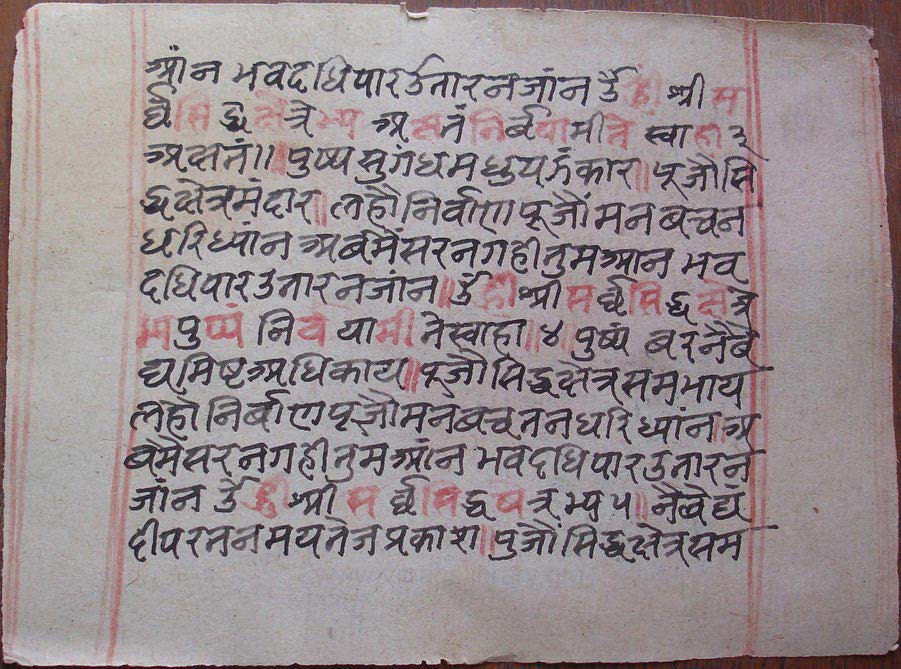 आंन भवदधिपारउतारनजांन ॐ ह्रीं श्री स
र्ब सिद्ध क्षेत्रेभ्य अक्षतं निर्बपामीते स्वाहा ३
अक्षतं॥ पुष्प सुगंध मधुप झंकार॥ पूजौ सि
द्धक्षेत्रमंदार॥ लहौ निर्वाण पूजौं मन बचन
धरि ध्यांन अबमैंसरनगही तुम आन भव
दधिपारउतारनजांन॥ ॐ ह्रीं श्री सर्ब सिद्ध क्षेत्रे
भ्य पुष्पं निर्बपामीतेस्वाहा॥४॥ पुष्पं बर नैबे
द्य मिष्ट अधिकाय॥ पूजौ सिद्धक्षेत्र समभाय
लहौ निर्बाण पूजौ मनबचतन धरि ध्यांन अ
बमैसरनगही तुम आंन भवदधिपारउतारन
जांन ॐ ह्रीं श्री सर्ब सिद्ध षेत्रभ्य ५॥ नैबेद्यं
दीप रतनमय तेज प्रकाश॥ पुजौं सिद्धक्षेत्र सम